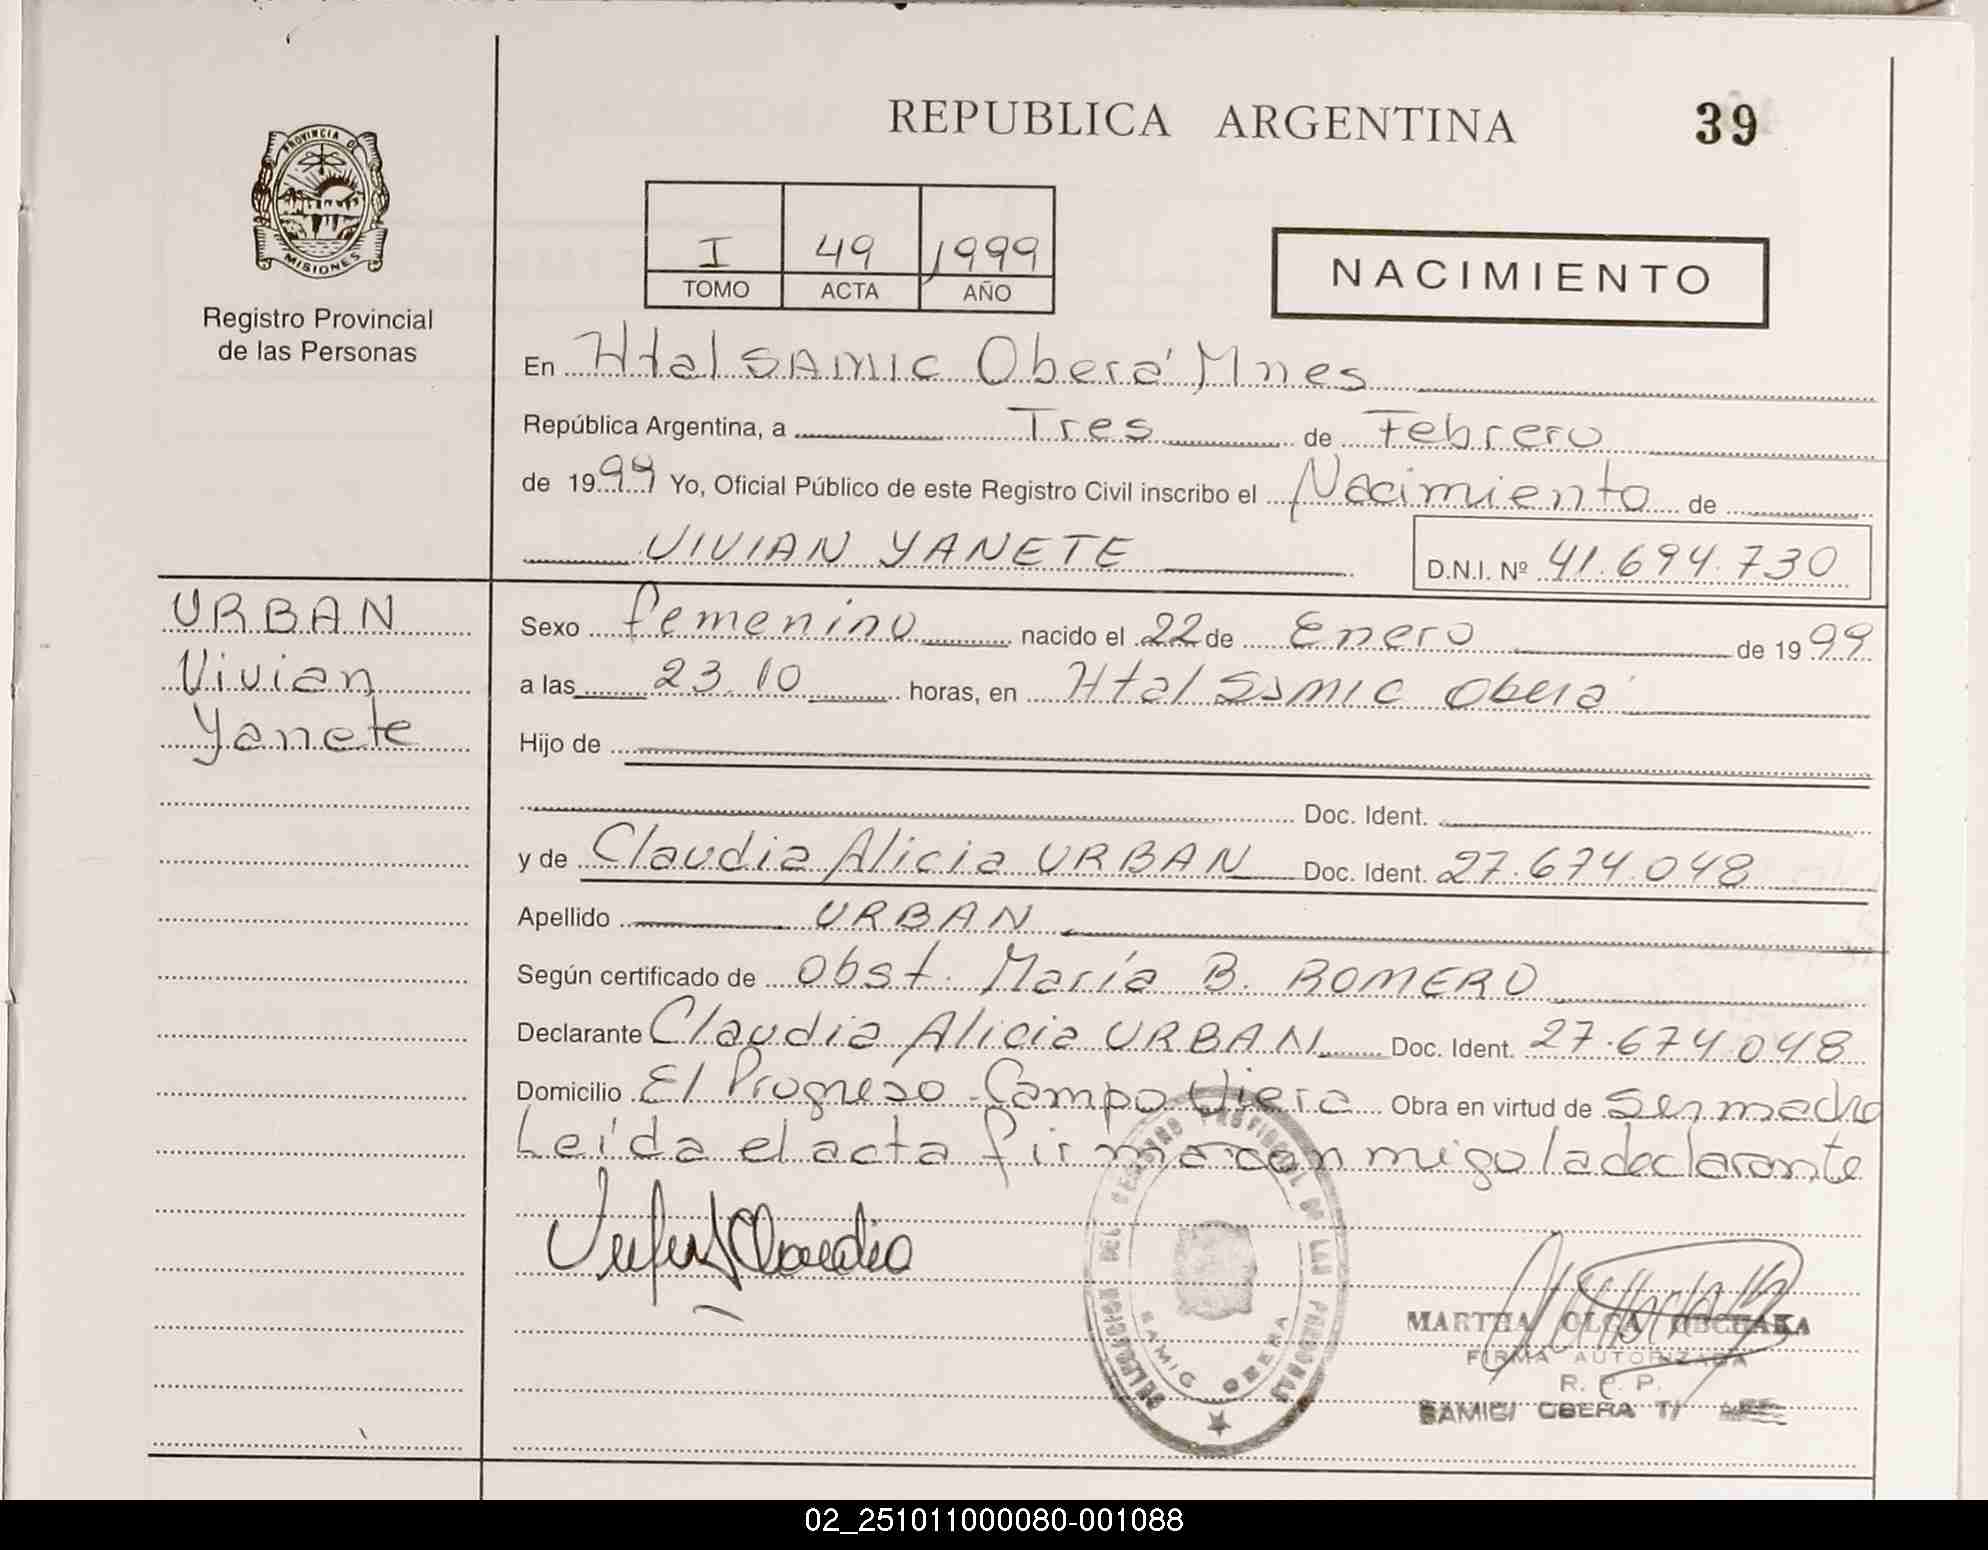 REPUBLICA ARGENTINA
39
PROVINCIA DE
MISIONES
Registro Provincial
de las Personas
I 49 1999
TOMO ACTA AÑO
NACIMIENTO
En Htal SAMIC Oberá Mnes
República Argentina, a Tres de Febrero
de 1999 Yo, Oficial Público de este Registro Civil inscribo el Nacimiento de
VIVIAN YANETE D.N.I. Nº 41.694.730
URBAN
Vivian
Yanete
Sexo femenino nacido el 22 de Enero de 1999
a las 23.10 horas, en Htal Samic Oberá
Hijo de
Doc. Ident.
y de Claudia Alicia URBAN Doc. Ident. 27.674.048
Apellido URBAN
Según certificado de Obst. María B. ROMERO
Declarante Claudia Alicia URBAN Doc. Ident. 27.674.048
Domicilio El Progreso Campo Viera Obra en virtud de Ser madre
Leída el acta firma conmigo la declarante
Claudia
DELEGACION DEL REGISTRO PROVINCIAL DE LAS PERSONAS
SAMIC OBERA
MARTHA OLGA
FIRMA AUTORIZADA
R. P. P.
SAMIC OBERA
02_251011000080-001088